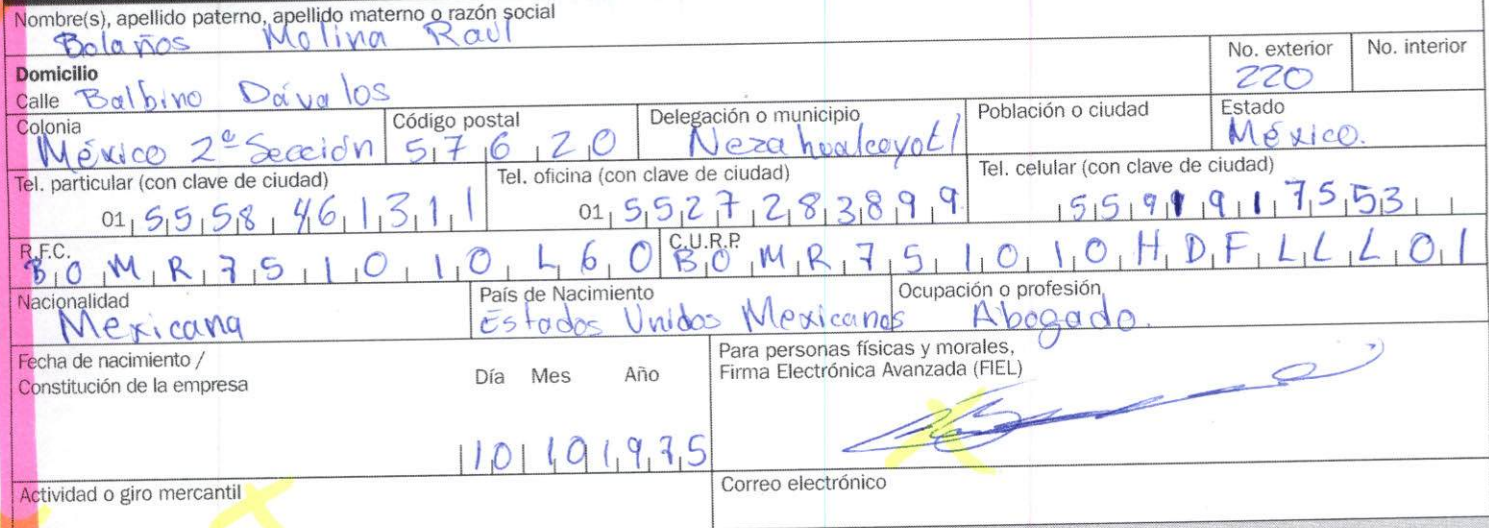 Nombre(s), apellido paterno, apellido materno o razón social
Bolaños Molina Raúl
Domicilio
No. exterior
220
No. interior
Calle Balbino Dávalos
Colonia
México 2ª Sección
Código postal
57620
Delegación o municipio
Nezahualcoyotl
Población o ciudad
Estado
México.
Tel. particular (con clave de ciudad)
01 5558461311
Tel. oficina (con clave de ciudad)
01 5527283899
Tel. celular (con clave de ciudad)
5591917553
R.F.C.
BOMR751010L60
C.U.R.P.
BOMR751010HDFLLL01
Nacionalidad
Mexicana
País de Nacimiento
Estados Unidos Mexicanos
Ocupación o profesión
Abogado.
Fecha de nacimiento /
Constitución de la empresa
Día Mes Año
10 10 1975
Para personas físicas y morales,
Firma Electrónica Avanzada (FIEL)
Actividad o giro mercantil
Correo electrónico